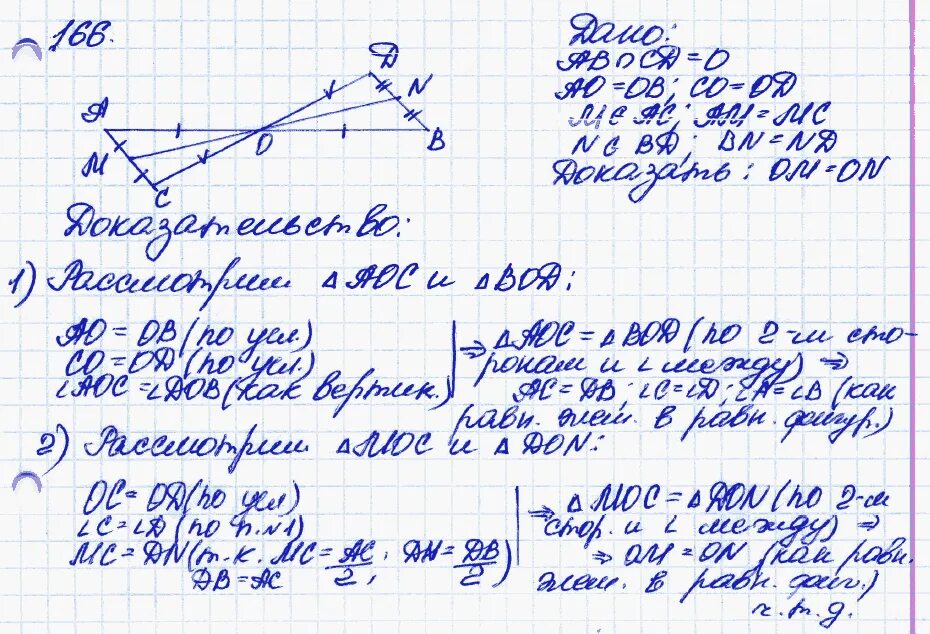 166.
Дано:
AB∩CD=O
AO=OB; CO=OD
M∈AC; AM=MC
N∈BD; BN=ND
Доказать: OM=ON
D
N
A
O
B
M
C
Доказательство:
1) Рассмотрим △AOC и △BOD:
AO = OB (по усл.)
CO = OD (по усл.)
∠AOC = ∠DOB (как вертик.)
⇒ △AOC = △BOD (по 2-м сто-
ронам и ∠ между) ⇒
AC = DB; ∠C=∠D; ∠A=∠B (как
равн. элем. в равн. фигур.)
2) Рассмотрим △MOC и △DON:
OC = OD (по усл)
∠C=∠D (по п.№1)
MC = DN (т.к. MC = AC/2; DN = DB/2)
DB = AC
⇒ △MOC = △DON (по 2-м
стор. и ∠ между) ⇒
⇒ OM = ON (как равн.
элем. в равн. фиг.)
ч.т.д.